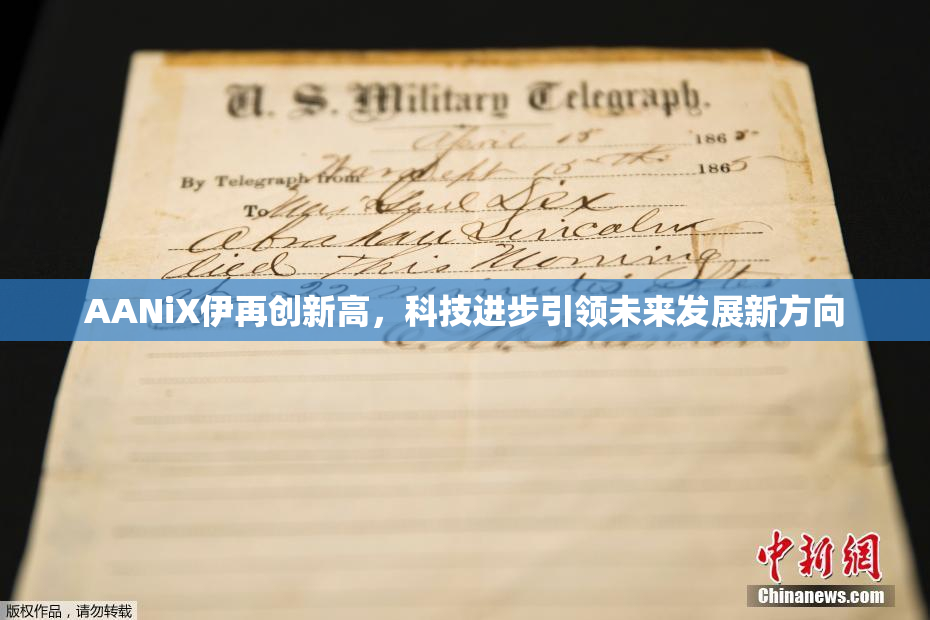 U. S. Military Telegraph.
April 15 1865
By Telegraph from War Dept 15th 1865
To Maj Genl Dix
Abraham Lincoln
died This Morning
22 minutes after
AANiX伊再创新高，科技进步引领未来发展新方向
E. M. Stanton
中新网
Chinanews.com
版权作品，请勿转载